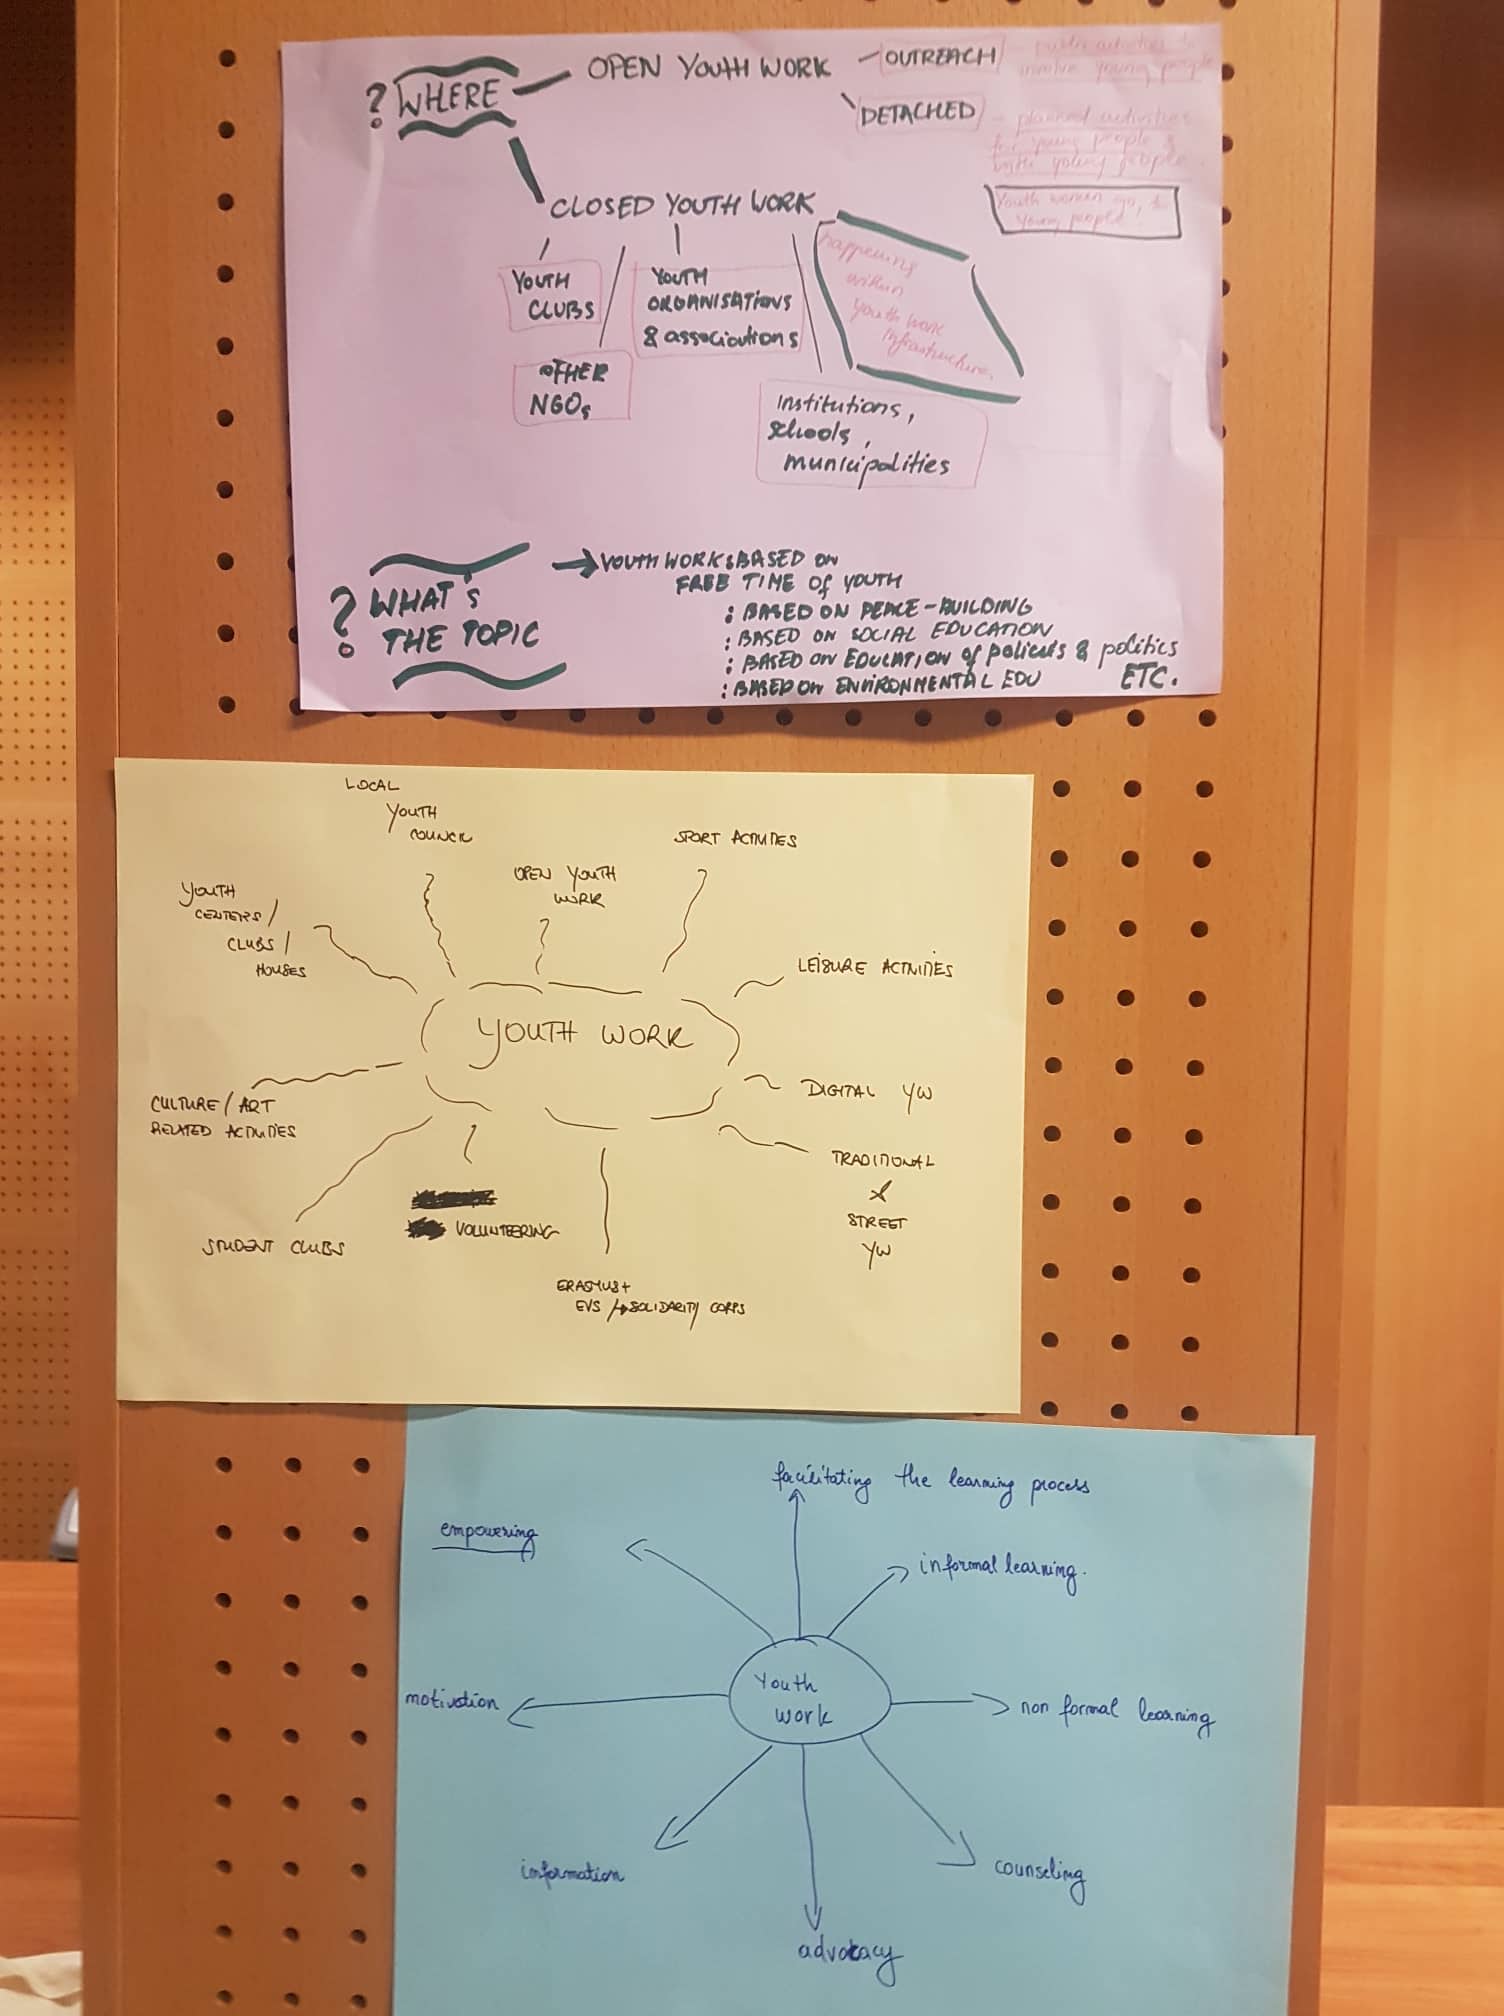 ? WHERE
OPEN YOUTH WORK
OUTREACH
public activities to
involve young people
DETACHED
planned activities
for young people &
with young people.
Youth workers go to
young people
CLOSED YOUTH WORK
YOUTH
CLUBS
OTHER
NGOs
YOUTH
ORGANISATIONS
& associations
happening
within
youth work
infrastructure.
Institutions,
schools,
municipalities
? WHAT's
THE TOPIC
→ YOUTH WORK : BASED ON
FREE TIME of YOUTH
: BASED ON PEACE-BUILDING
: BASED ON SOCIAL EDUCATION
: BASED ON EDUCATION of policies & politics
: BASED ON ENVIRONMENTAL EDU ETC.
LOCAL
YOUTH
COUNCIL
OPEN YOUTH
WORK
SPORT ACTIVITIES
YOUTH
CENTERS /
CLUBS /
HOUSES
LEISURE ACTIVITIES
YOUTH WORK
DIGITAL YW
CULTURE / ART
RELATED ACTIVITIES
TRADITIONAL
&
STREET
YW
STUDENT CLUBS
VOLUNTEERING
ERASMUS+
EVS /→SOLIDARITY CORPS
facilitating the learning process
empowering
informal learning.
Youth
work
motivation
non formal learning
information
counseling
advocacy